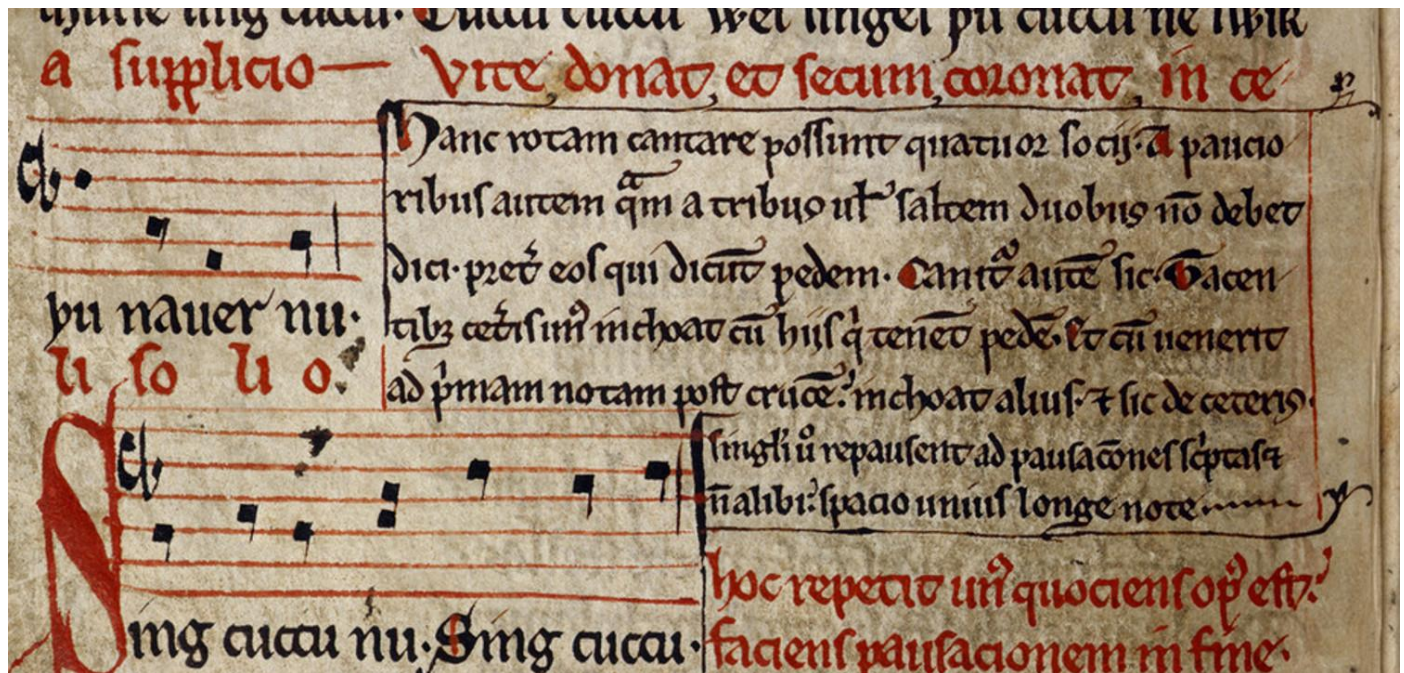 sing cuccu. Cuccu cuccu wel singes þu cuccu ne swik
a supplicio vite donat, et secum coronat, in ce
Hanc rotam cantare possunt quatuor socij. A paucio
ribus autem qᵃm a tribus ul' saltem duobus nō debet
dici. pret' eos qui dicūt pedem. Canitᵘʳ autē sic. Tacen
tibꝫ cet'is unꝰ inchoat cū hijs qͥ tenēt pedē. Et cū uenerit
ad pͥmam notam post crucē. inchoat alius. ⁊ sic de ceteris.
þu nauer nu.
li so li o.
singl'i ů repausent ad pausacōnes scͥptas ⁊
n̄ alibi. spacio unius longe note
hoc repetit unꝰ quociens opꝰ est.
faciens pausacionem in fine.
Sing cuccu nu. Sing cuccu.